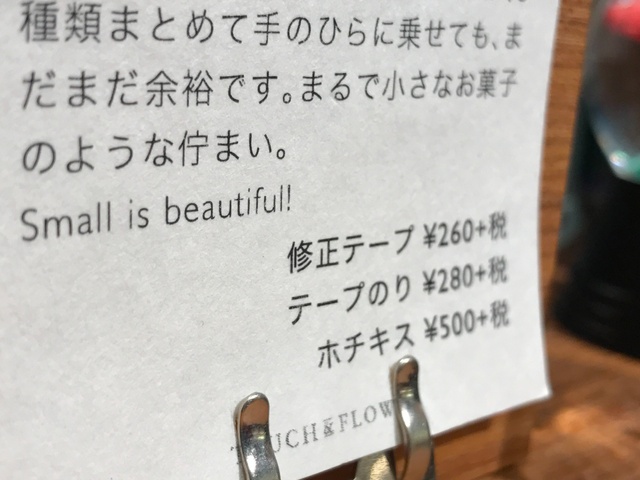 種類まとめて手のひらに乗せても、ま
だまだ余裕です。まるで小さなお菓子
のような佇まい。
Small is beautiful!
修正テープ ¥260+税
テープのり ¥280+税
ホチキス ¥500+税
TOUCH&FLOW